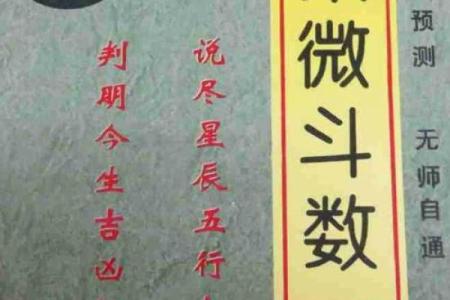 预测 无师自通
微斗数
说尽星辰五行
判明今生吉凶